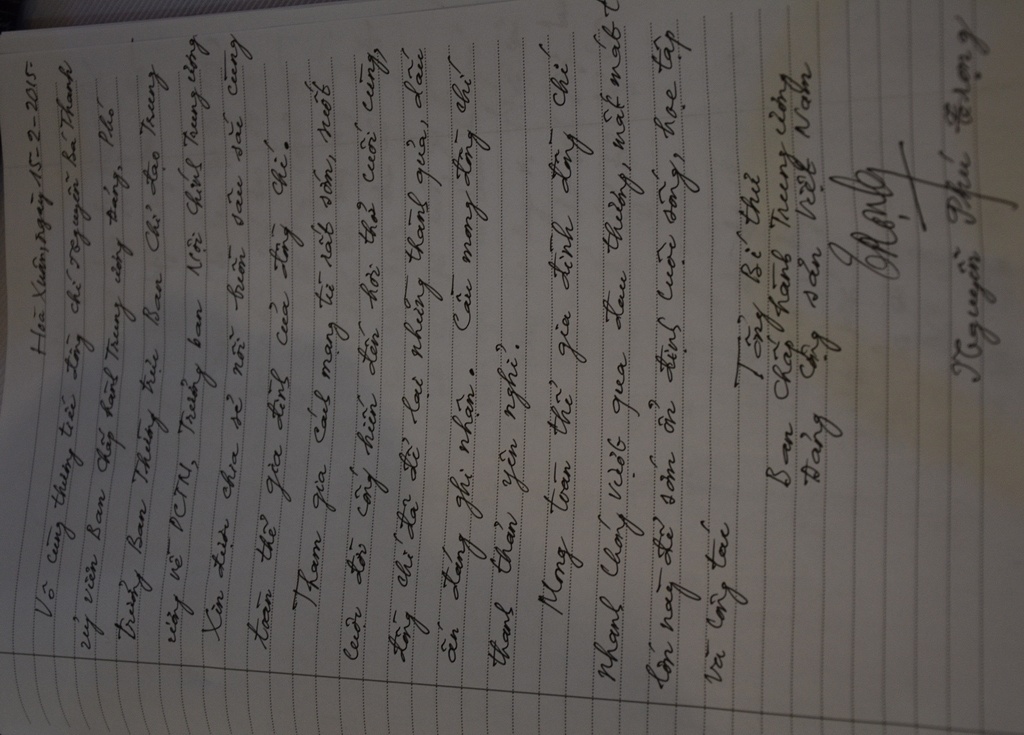 Hòa Xuân, ngày 15-2-2015
Vô cùng thương tiếc đồng chí Nguyễn Bá Thanh
uỷ viên Ban chấp hành Trung ương Đảng, Phó
trưởng Ban Thường trực Ban Chỉ đạo Trung
ương về PCTN, Trưởng ban Nội chính Trung ương
Xin được chia sẻ nỗi buồn sâu sắc cùng
toàn thể gia đình của đồng chí.
Tham gia cách mạng từ rất sớm, suốt
cuộc đời cống hiến đến hơi thở cuối cùng,
đồng chí đã để lại những thành quả, dấu
ấn đáng ghi nhận. Cầu mong đồng chí
thanh thản yên nghỉ.
Mong toàn thể gia đình đồng chí
nhanh chóng vượt qua đau thương, mất mát
lớn này để sớm ổn định cuộc sống, học tập
và công tác
Tổng Bí thư
Ban Chấp hành Trung ương
Đảng cộng sản Việt Nam
Trọng
Nguyễn Phú Trọng